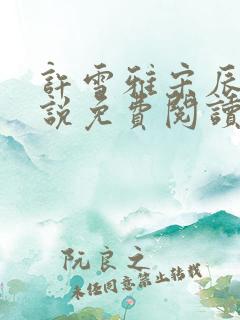 許雪雅宋辰
說免費閱讀
阮良之
未經同意禁止轉載